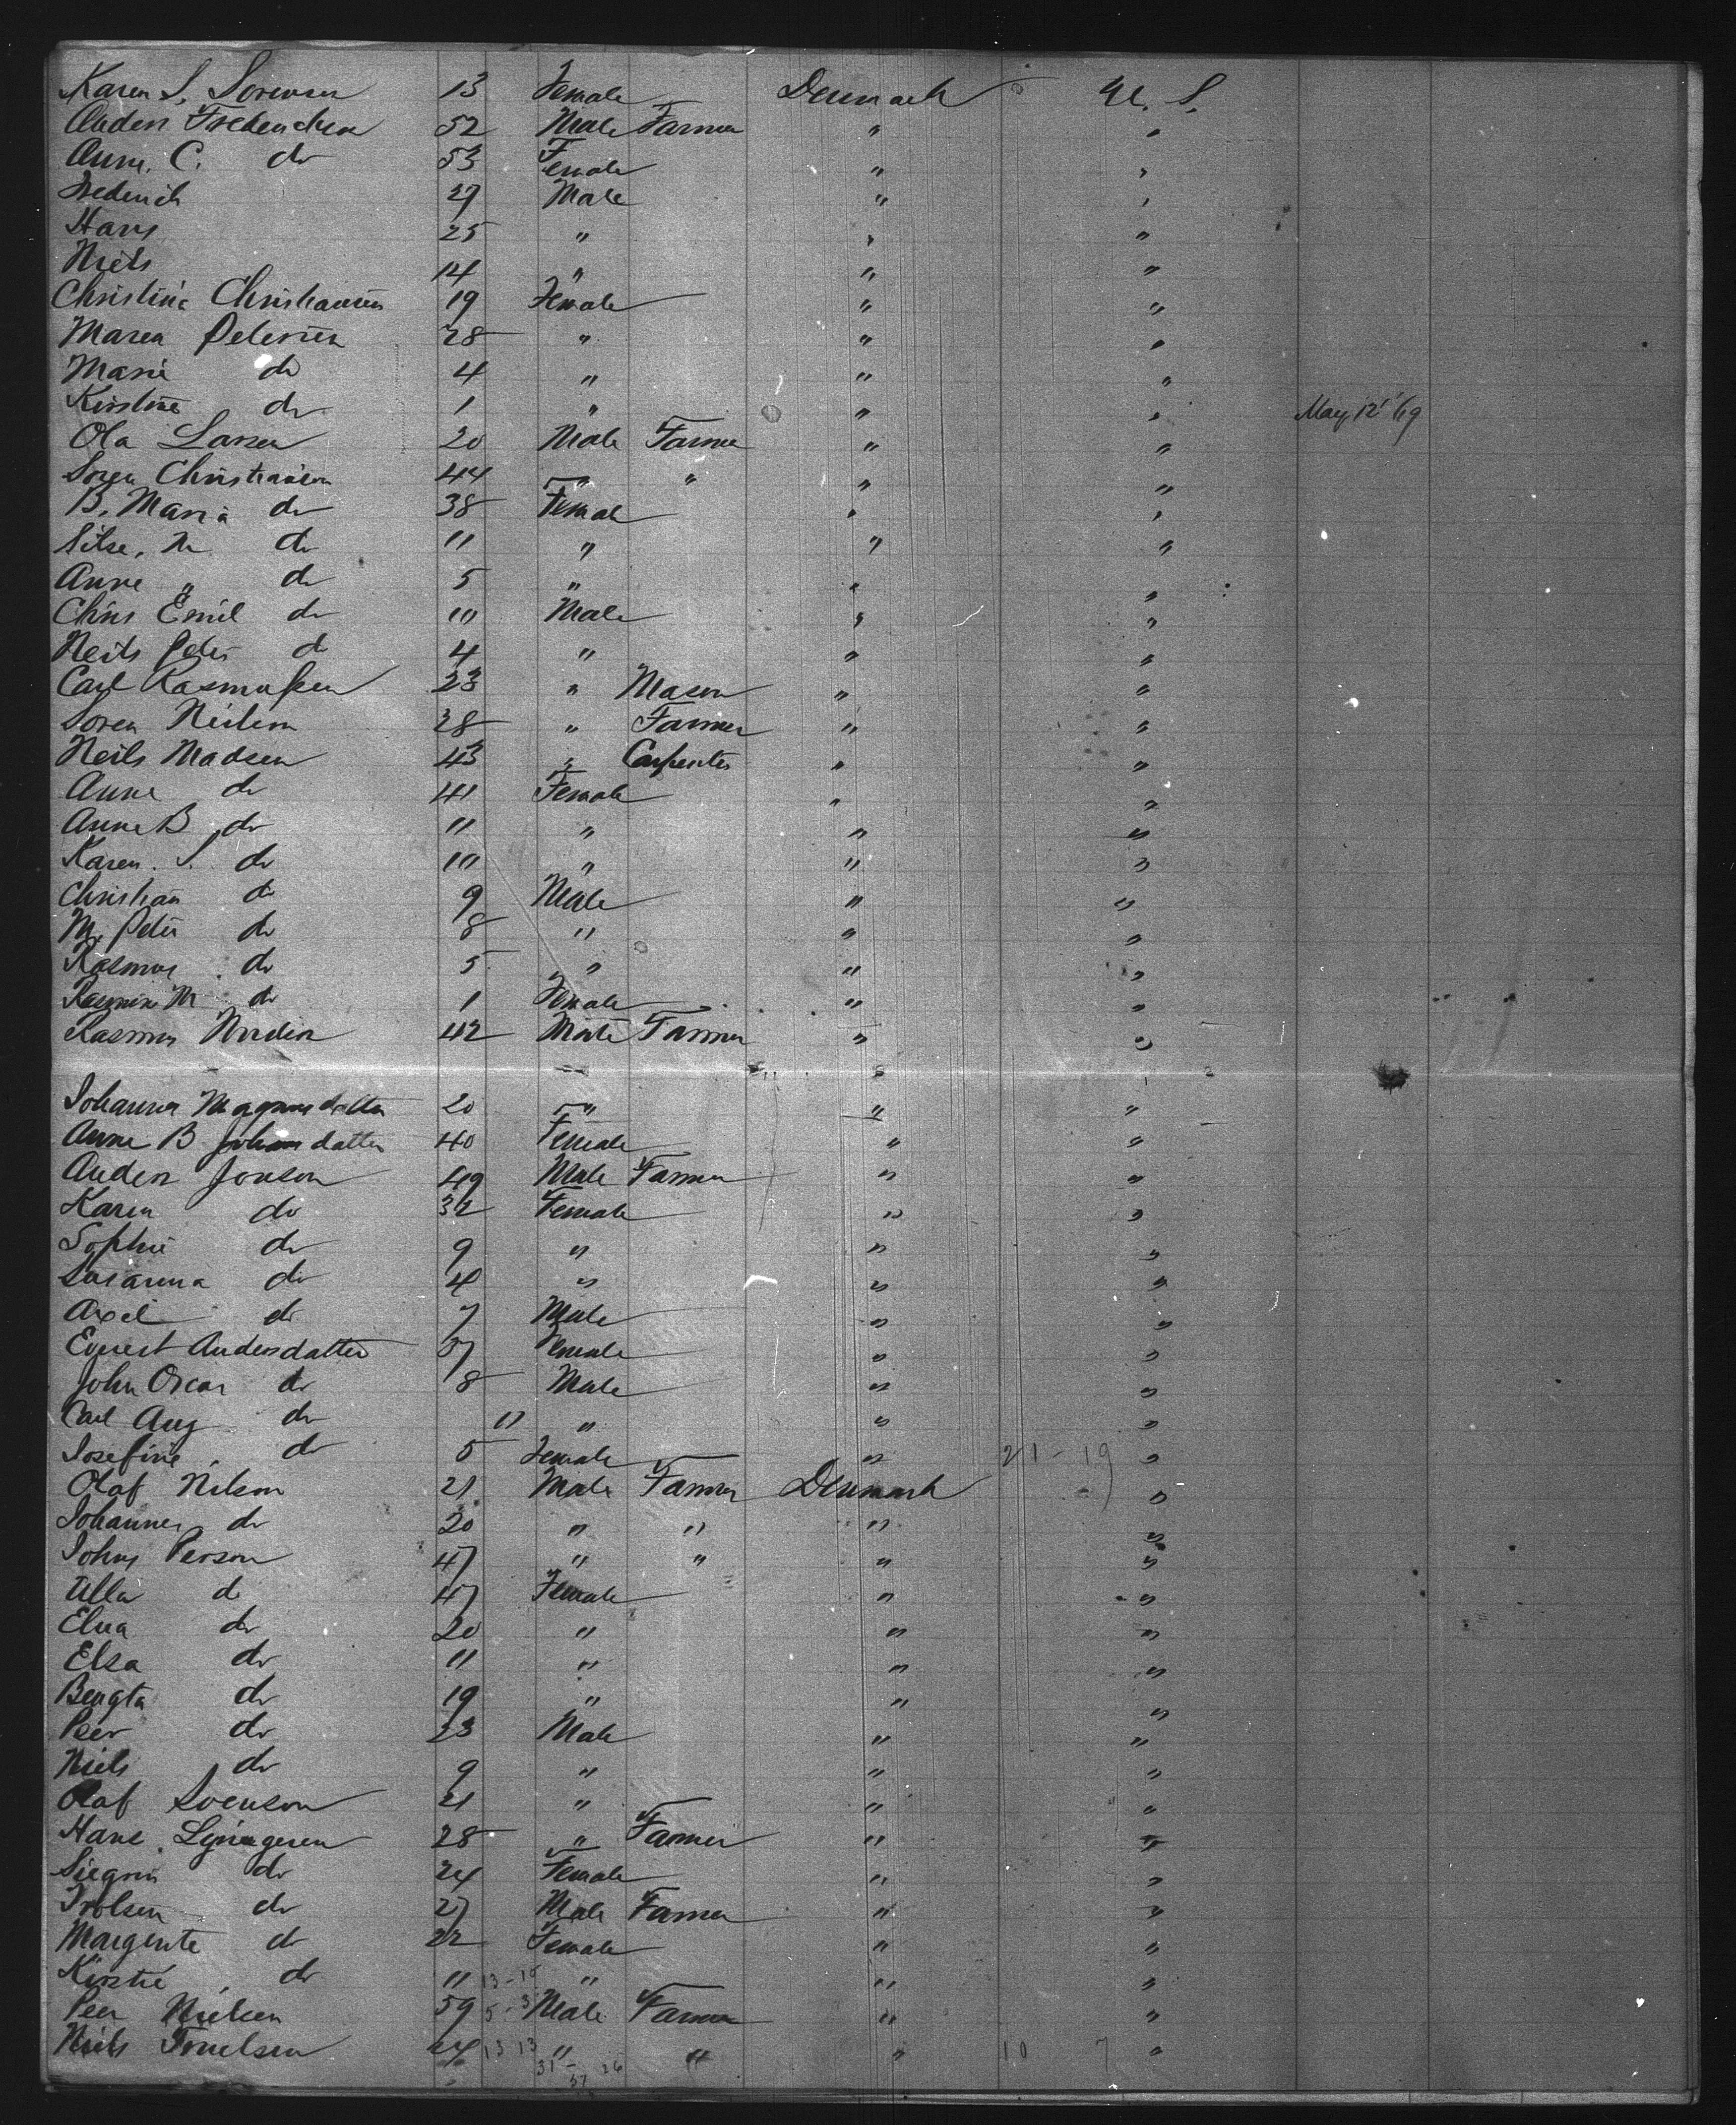 Karen S. Sorensen 13 Female Denmark U. S.
Anders Fredericksen 52 Male Farmer " "
Anne. C. do 53 Female " "
Frederich 27 Male " "
Hans 25 " " "
Niels 14 " " "
Christine Christiansen 19 Female " "
Maren Petersen 28 " " "
Marie do 4 " " "
Kirstine do 1 " " " May 12' 69
Ola Larsen 20 Male Farmer " "
Soren Christiansen 44 " " " "
B. Maria do 38 Female " "
do 11 " " "
Anne " do 5 " " "
Chris Emil do 10 Male " "
Neils Peter do 4 " " "
Carl Rasmussen 23 " Mason " "
Soren Neilsen 28 " Farmer " "
Neils Madsen 43 " Carpenter " "
Anne do 41 Female " "
Anne B do 11 " " "
Karen. S. do 10 " " "
Christian do 9 Male " "
M. Peter do 8 " " "
Rasmus do 5 " " "
Rasmine M do 1 Female " "
Rasmus 42 Male Farmer " "
Johanna Magnusdatter 20 " " "
Anne B Johansdatter 40 Female " "
Anders Jonson 49 Male Farmer " "
Karen do 32 Female " "
Sophie do 9 " " "
Susanna do 4 " " "
Axel do 7 Male " "
Andersdatter 37 Female " "
John Oscar do 8 Male " "
Carl Aug do " " " "
Josefine do 5 Female " 21 - 19 "
Olaf Nilson 21 Male Farmer Denmark "
Johannes do 20 " " " "
Johns Person 47 " " " "
Ulla do 47 Female " "
Elna do 20 " " "
Elsa do 11 " " "
Bengta do 19 " " "
Peer do 23 Male " "
Niels do 9 " " "
Olaf Svenson 21 " " "
Hans 28 " Farmer " "
do 24 Female " "
do 27 Male Farmer " "
Margerite do 22 Female " "
Kirstie do 11 " " "
Peer Nielsen 59 Male Farmer " "
Niels 24 13 13 " " " 10 7 "